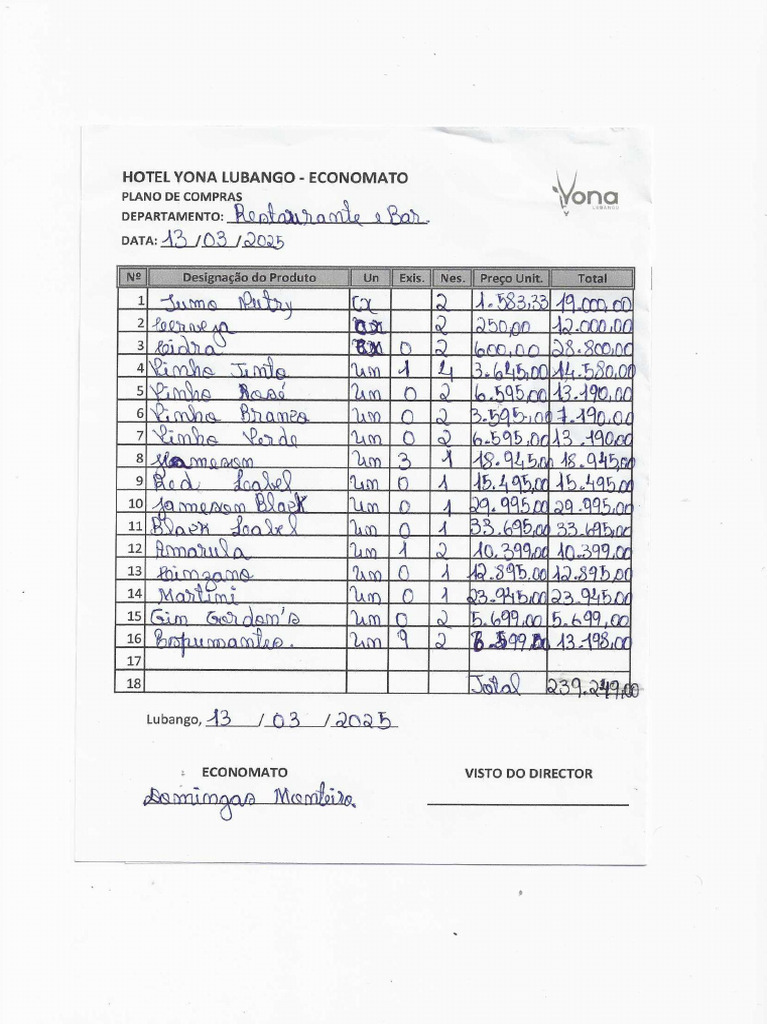 HOTEL YONA LUBANGO - ECONOMATO
PLANO DE COMPRAS
Yona
LUBANGO
DEPARTAMENTO: Restaurante e Bar.
DATA: 13/03/2025
Nº Designação do Produto Un Exis. Nes. Preço Unit. Total
1 Sumo Nutry cx 2 1.583,33 19.000,00
2 Cerveja cx 2 250,00 12.000,00
3 Cidra cx 0 2 600,00 28.800,00
4 Vinho Tinto Un 1 4 3.645,00 14.580,00
5 Vinho Rosé Un 0 2 6.595,00 13.190,00
6 Vinho Branco Un 0 2 3.595,00 7.190,00
7 Vinho Verde Un 0 2 6.595,00 13.190,00
8 Jameson Un 3 1 18.945,00 18.945,00
9 Red Label Un 0 1 15.495,00 15.495,00
10 Jameson Black Un 0 1 29.995,00 29.995,00
11 Black Label Un 0 1 33.695,00 33.695,00
12 Amarula Un 1 2 10.399,00 10.399,00
13 Cinzano Un 0 1 12.895,00 12.895,00
14 Martini Un 0 1 23.945,00 23.945,00
15 Gin Gordon's Un 0 2 5.699,00 5.699,00
16 Espumantes. Un 9 2 6.599,00 13.198,00
17
18 Total 239.249,00
Lubango, 13 / 03 / 2025
ECONOMATO VISTO DO DIRECTOR
Domingas Monteiro